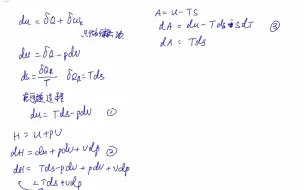 du = δQ + δw
du = δQ - pdv
ds = δQR/T δQR = Tds
du = Tds - pdv ①
H = U + pV
dH = du + pdv + vdp ②
dH = Tds - pdv + pdv + vdp
= Tds + vdp
A = U - TS
dA = du - Tds - sdT ③
dA = Tds